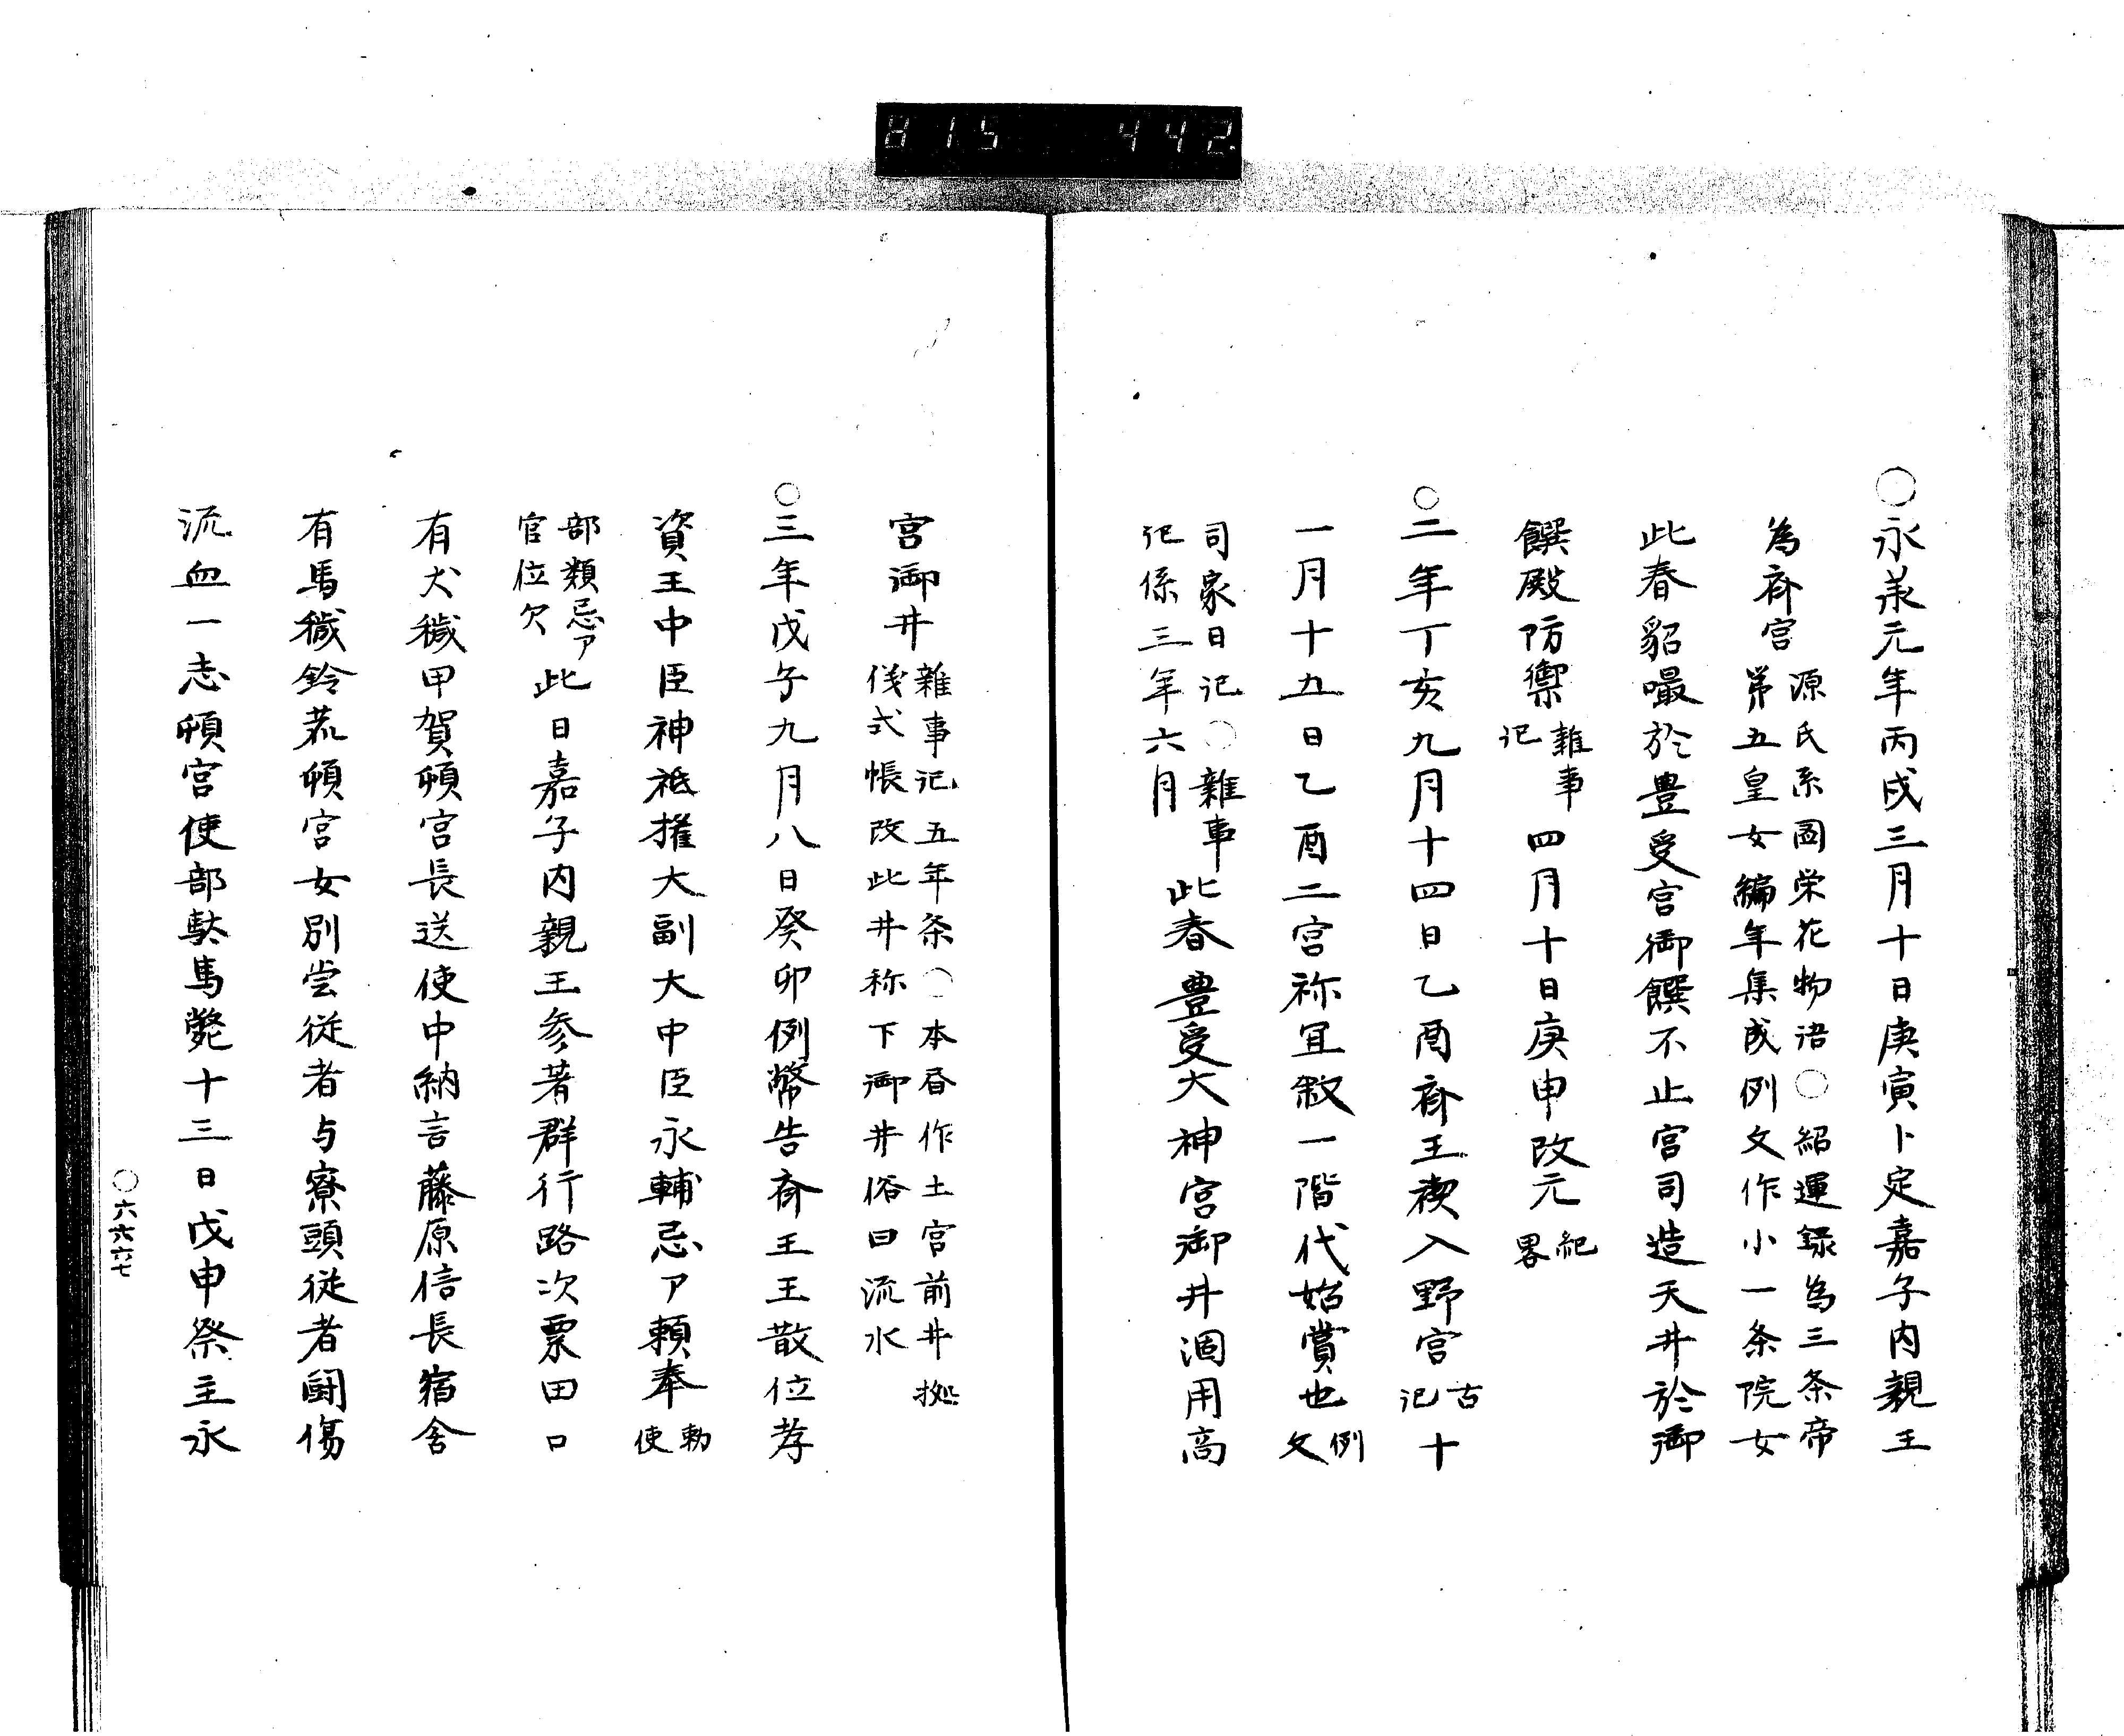 815 442.
○永承元年丙戌三月十日庚寅卜定嘉子内親王
為斎宮 源氏系図栄花物語○紹運録為三条帝
第五皇女編年集成例文作小一条院女
此春貂嘬於豊受宮御饌不止宮司造天井於御
饌殿防禦 雑事
記 四月十日庚申改元 紀
畧
○二年丁亥九月十四日乙酉斎王禊入野宮 古
記 十
一月十九日乙酉二宮祢宜叙一階代始賞也 例
文
司家日记○雑事
记係三年六月 此春豊受大神宮御井涸用高
宮御井 雑事记五年条○本居作土宮前井拠
儀式帳改此井称下御井俗曰流水
○三年戊子九月八日癸卯例幣告斎王王散位孝
資王中臣神祇権大副大中臣永輔忌ア頼奉 勅
使
部類忌ア
官位欠 此日嘉子内親王参著群行路次票田口
有犬穢甲賀頓宮長送使中納言藤原信長宿舎
有馬穢鈴荒頓宮女別当従者与寮頭従者闘傷
流血一志頓宮使部駄馬斃十三日戊申祭主永
○六六六七